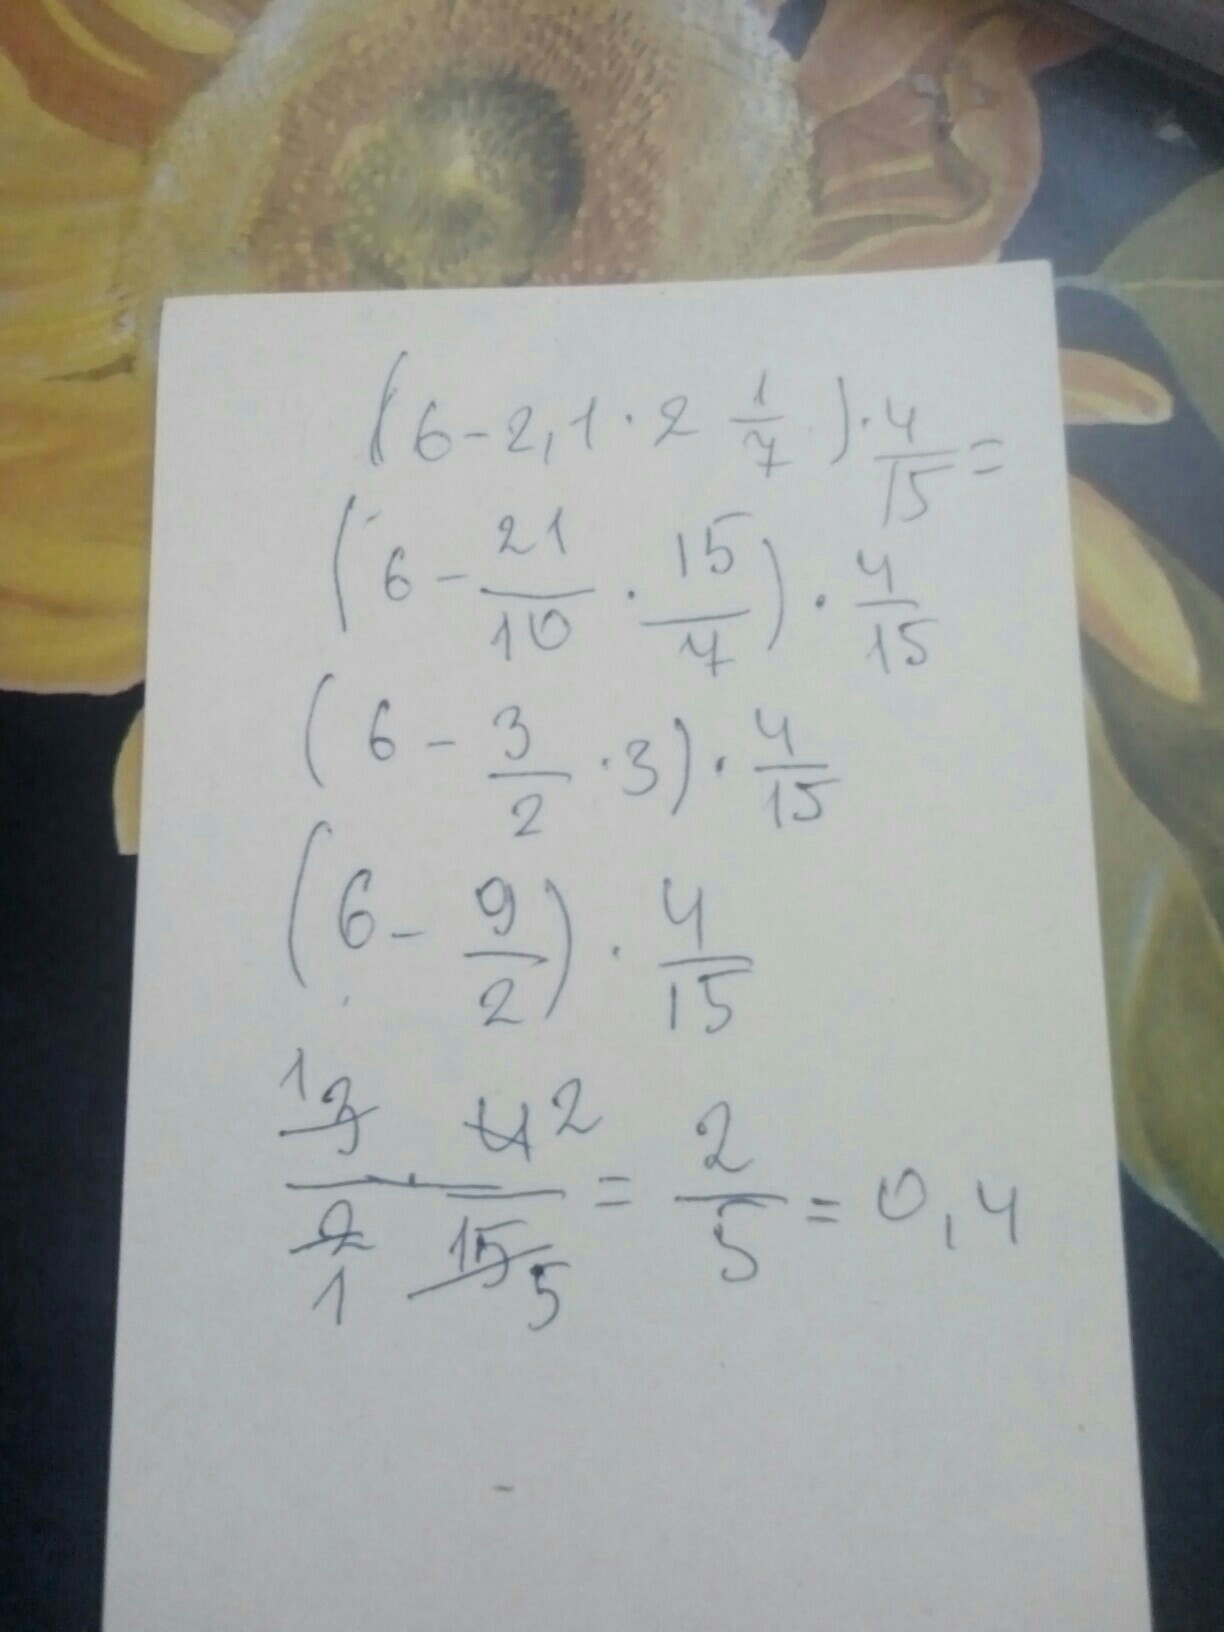 (6-2,1·2 1/7)·4/15=
(6-21/10·15/7)·4/15
(6-3/2·3)·4/15
(6-9/2)·4/15
1 3/2 1 · 4 2/15 5 = 2/5 = 0,4